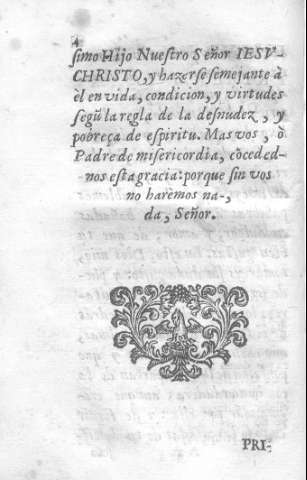 4
simo Hijo Nuestro Señor IESV-
CHRISTO, y hazerse semejante à
èl en vida, condicion, y virtudes
segũ la regla de la desnudez, y
pobreça de espiritu. Mas vos, ò
Padre de misericordia, cõceded-
nos esta gracia: porque sin vos
no harèmos na-,
da, Señor.
PRI-